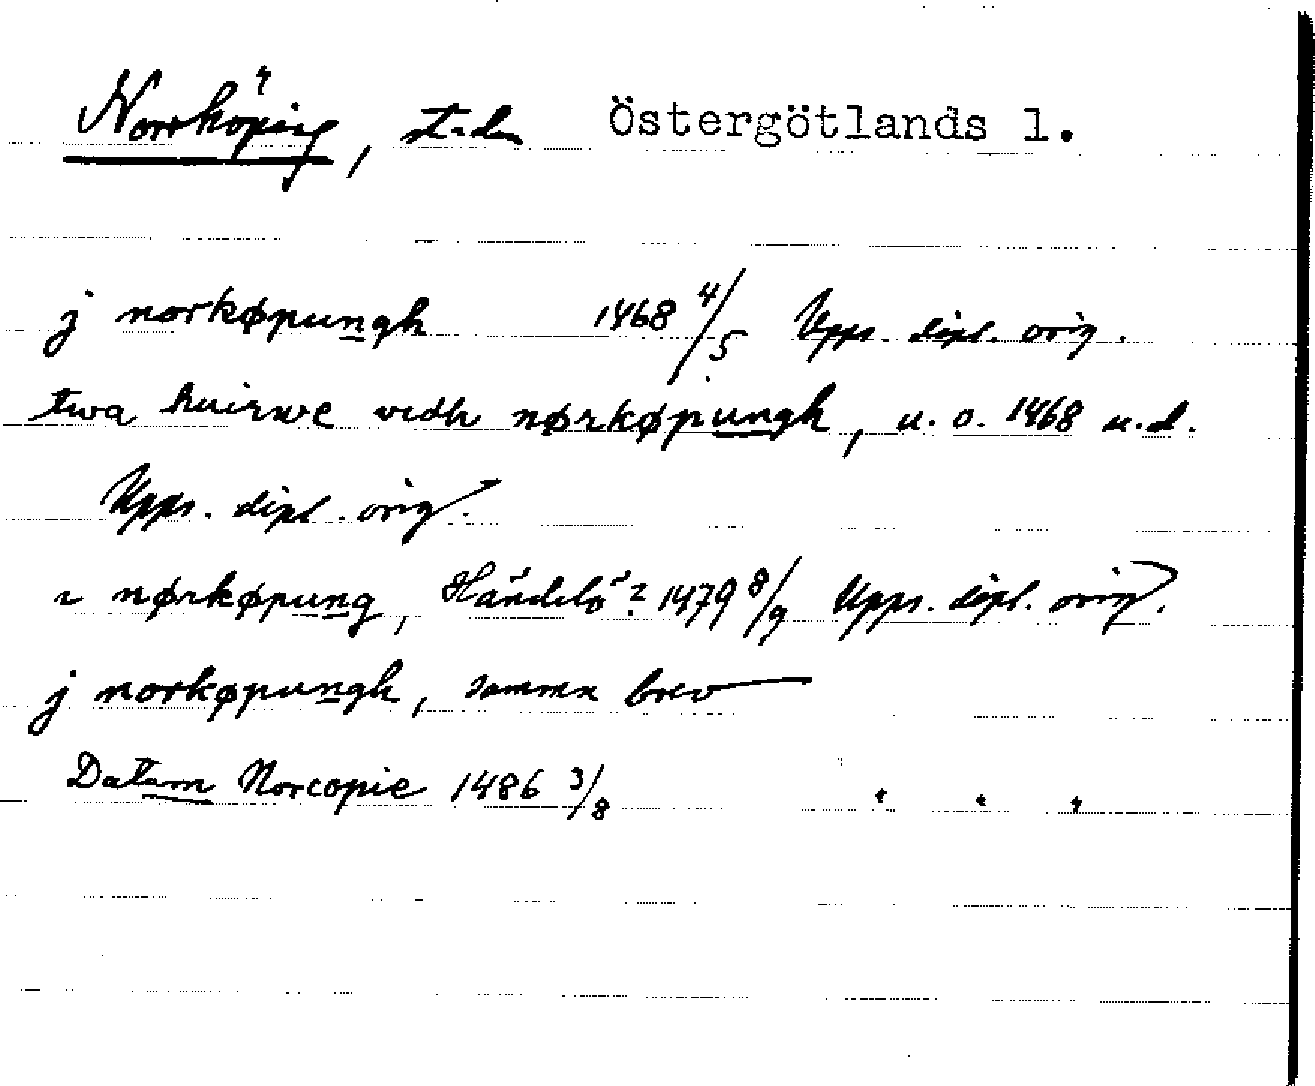 Norrköping, stad Östergötlands l.
j norkøpungh 1468 4/5 Upps. dipl. orig.
twa huirwe vidh nørkøpungh, u. o. 1468 u. d.
Upps. dipl. orig.
i nørkøpung, Händelö? 1479 8/9 Upps. dipl. orig.
j norkøpungh, samma brev
Datum Norcopie 1486 3/8 " " "